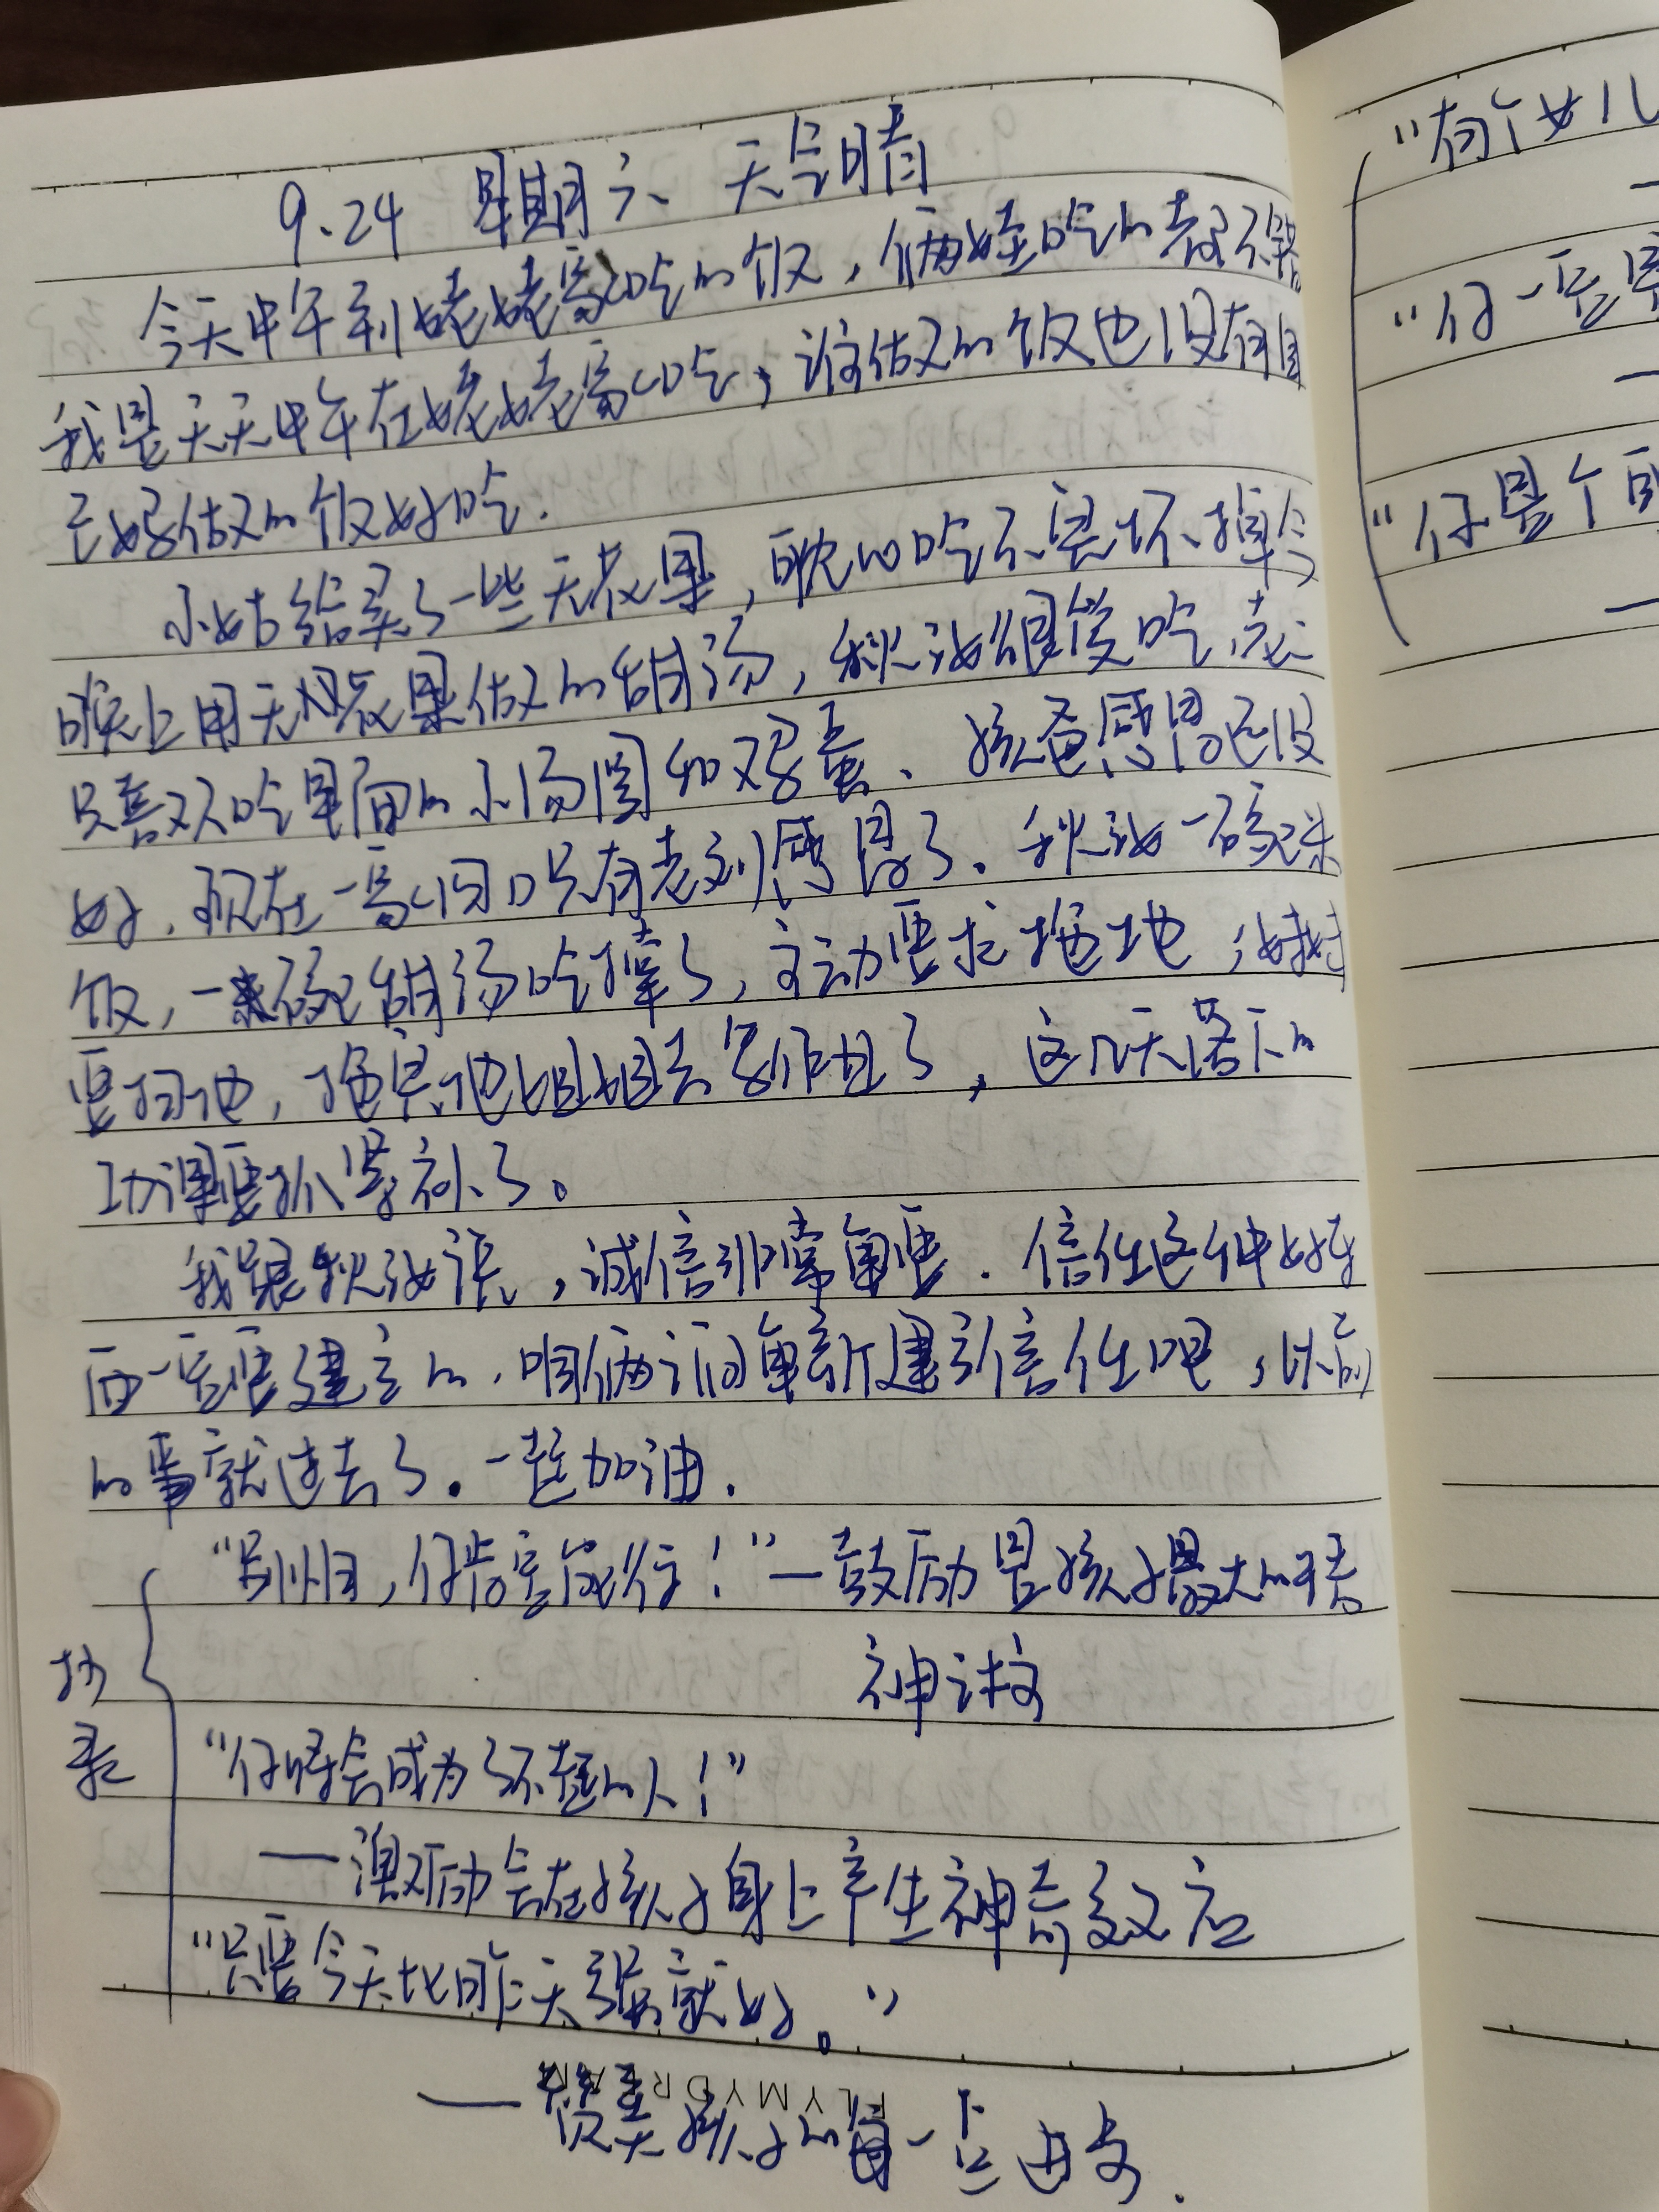 9.24 星期六 天气晴
今天中午到姥姥家吃的饭，俩娃吃的都不错
我是天天中午在姥姥家吃，谁做的饭也没有自
己妈做的饭好吃.
小姑给买了一些无花果，晚吃不完坏掉会
晚上用无花果做的甜汤，秋汝很爱吃，老二
只喜欢吃里面的小汤圆和鸡蛋、孩爸感冒已没
好，现在一家四口只有老刘感冒了、秋汝一碗米
饭，一碗甜汤吃撑了，主动要求拖地，妹妹
要扫地，拖完地姐姐去写作业了，这几天落下的
功课要抓紧补了。
我跟秋汝说，诚信非常重要. 信任这种好东
西一定要建立的，咱俩訂重新建立信任吧，以前
的事就过去了. 一起加油.
"别怕，你肯定能行！"—鼓励是孩子最大的精
神财
抄录
"你将会成为了不起的人！"
——激励会在孩子身上产生神奇效应
"只要今天比昨天强就好。"
FLY MY DREAM
——赞美孩子的每一点进步.
"有个女儿
"你一定
"你是个